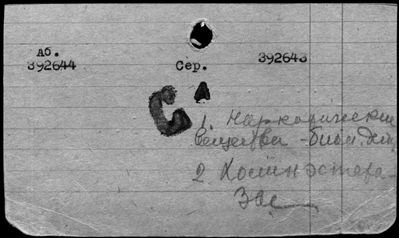 Аб.
392644
Сер.
392643
1. Наркотические
вещества - биол. дей
2. Холинэстера-
зы